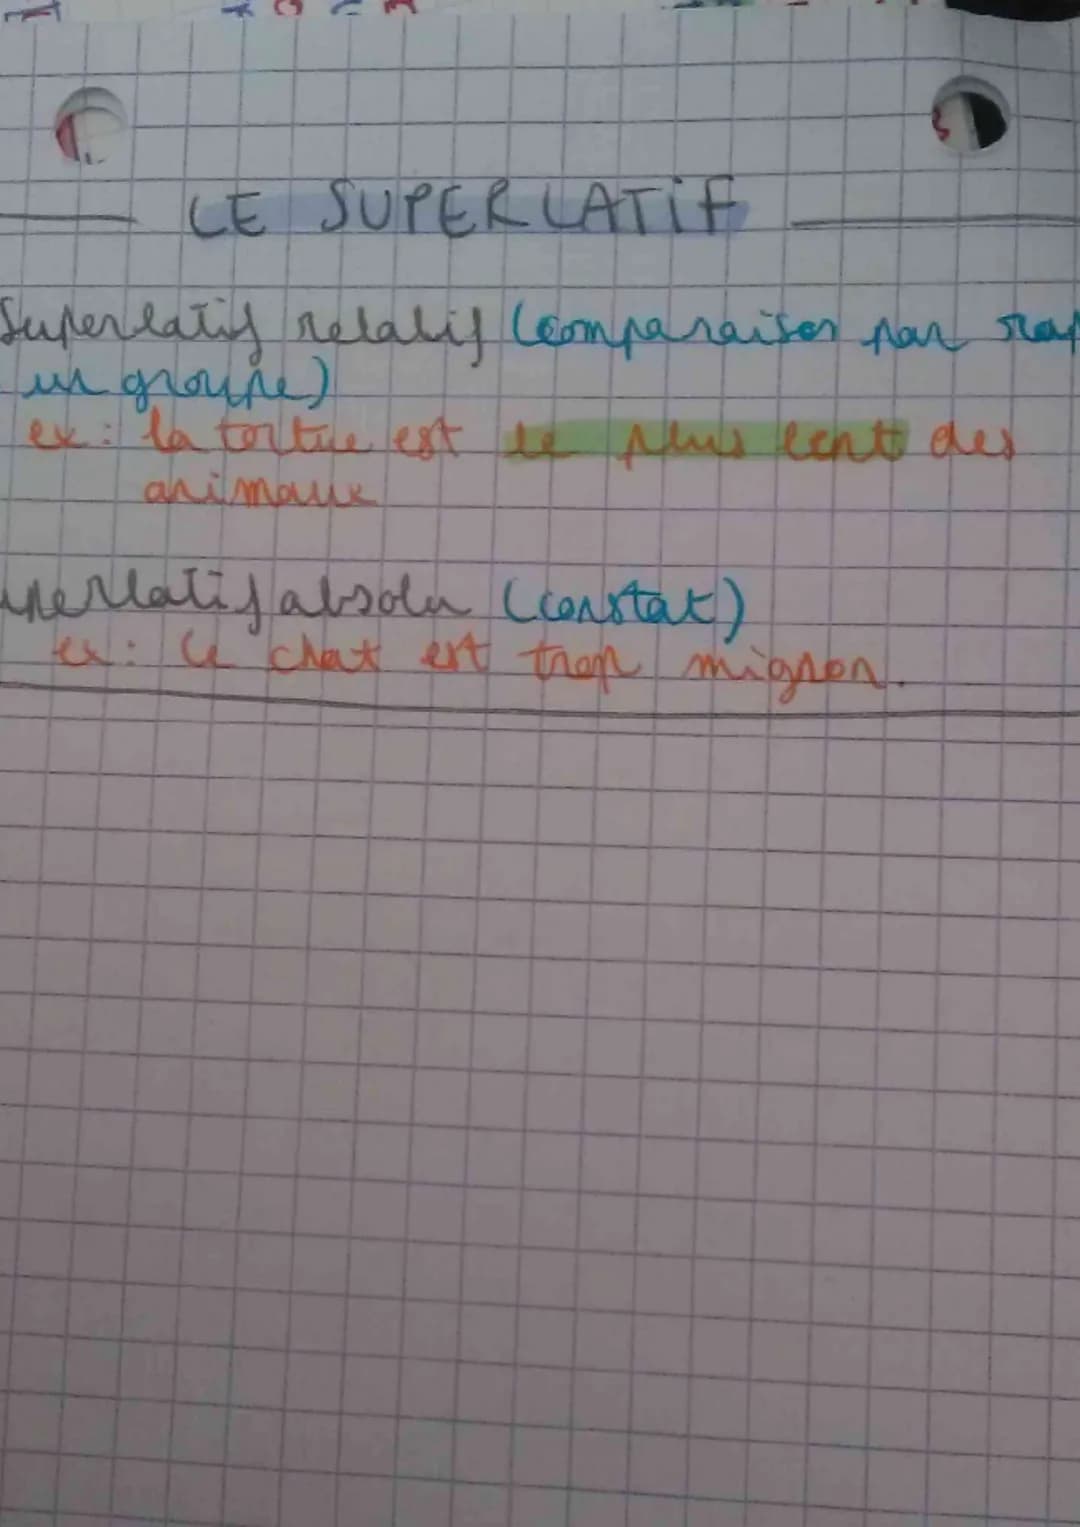 LE SUPERLATIF
Superlatif relatif (comparaison par rap
un groupe)
ex: la tortue est le plus lent des
animaux
uperlatif absolu (constat)
ex: le chat est trop mignon.